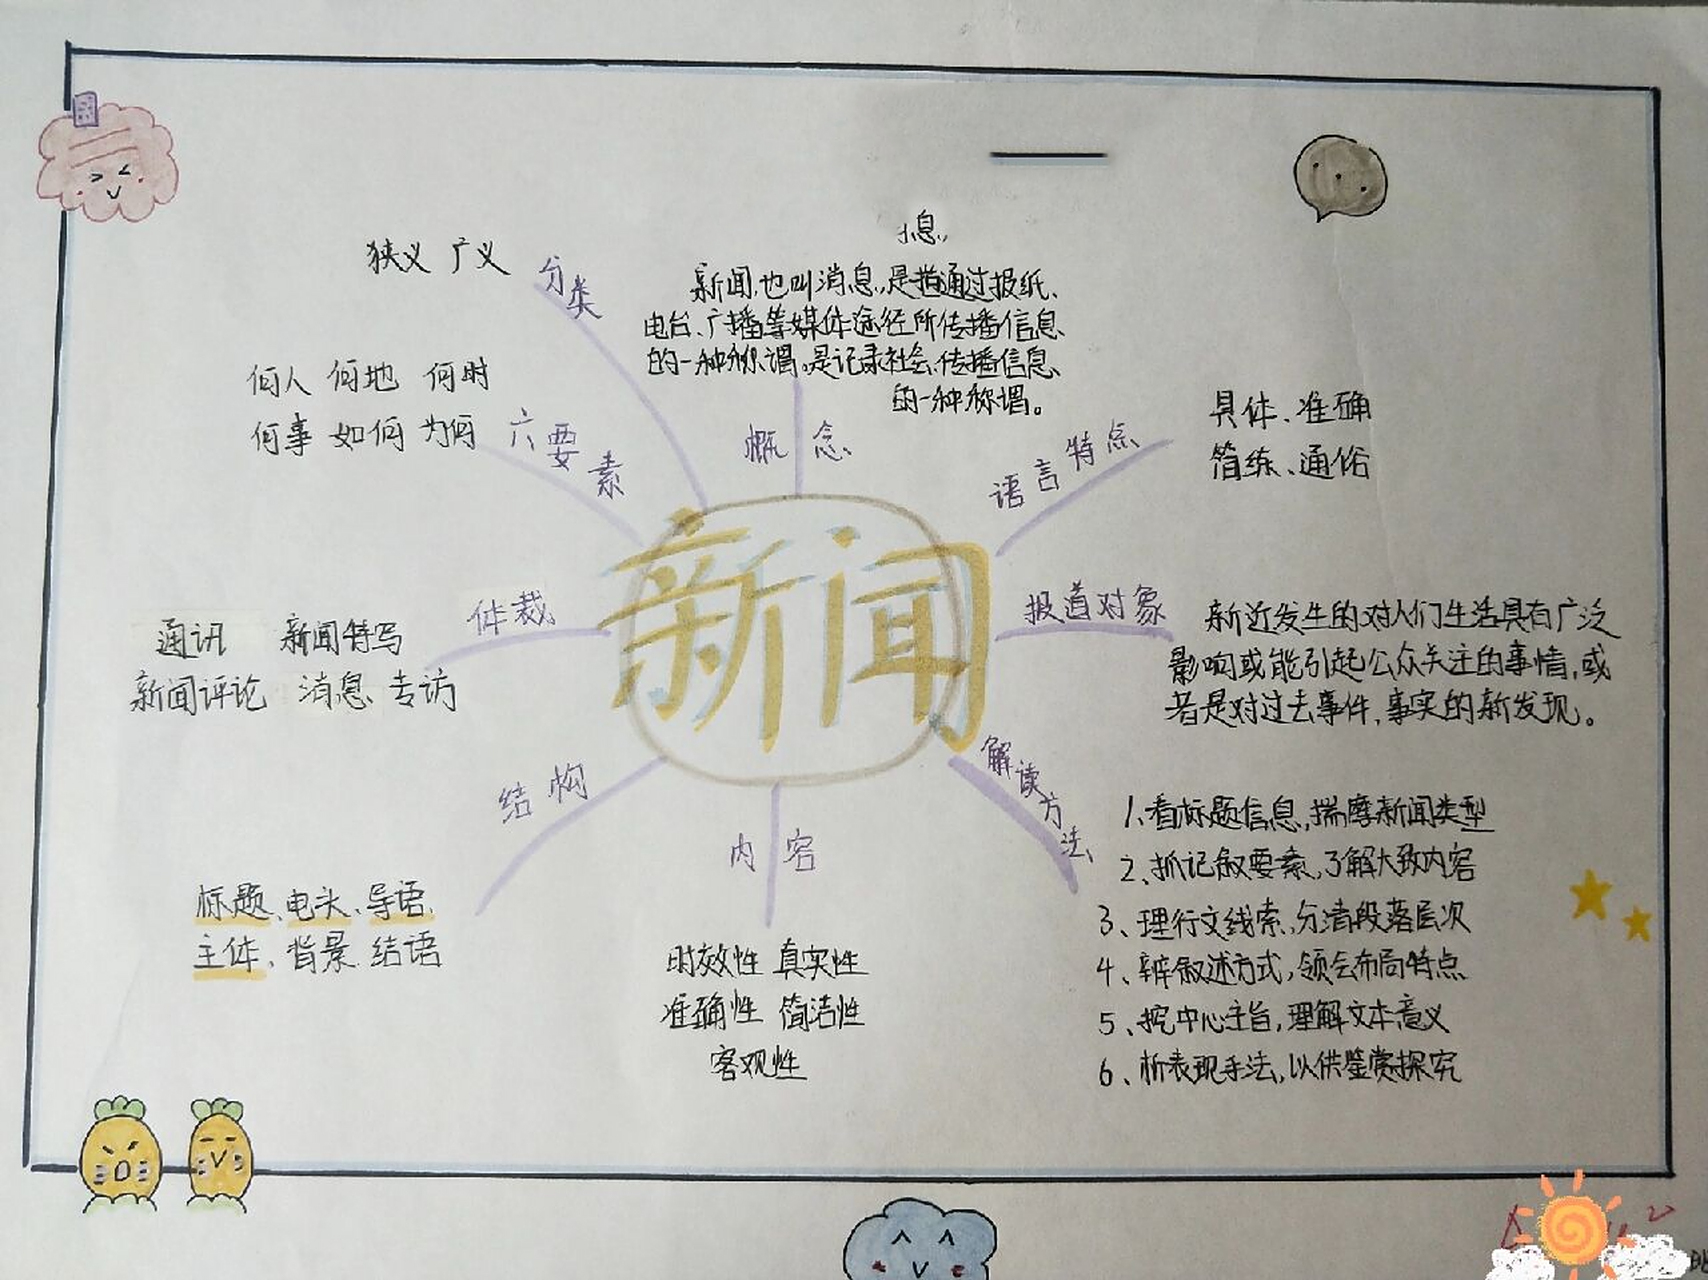 新闻
分类
狭义 广义
概念
息
新闻,也叫消息,是指通过报纸、
电台、广播等媒体途径所传播信息
的一种称谓。是记录社会、传播信息、
的一种称谓。
六要素
何人 何地 何时
何事 如何 为何
语言特点
具体、准确
简练、通俗
体裁
通讯 新闻特写
新闻评论 消息 专访
报道对象
新近发生的对人们生活具有广泛
影响或能引起公众关注的事情,或
者是对过去事件,事实的新发现。
结构
标题、电头、导语、
主体、背景 结语
内容
时效性 真实性
准确性 简洁性
客观性
解读方法
1、看标题信息,揣摩新闻类型
2、抓记叙要素,了解大致内容
3、理行文线索,分清段落层次
4、辨叙述方式,领会布局特点
5、挖中心主旨,理解文本意义
6、析表现手法,以供鉴赏探究